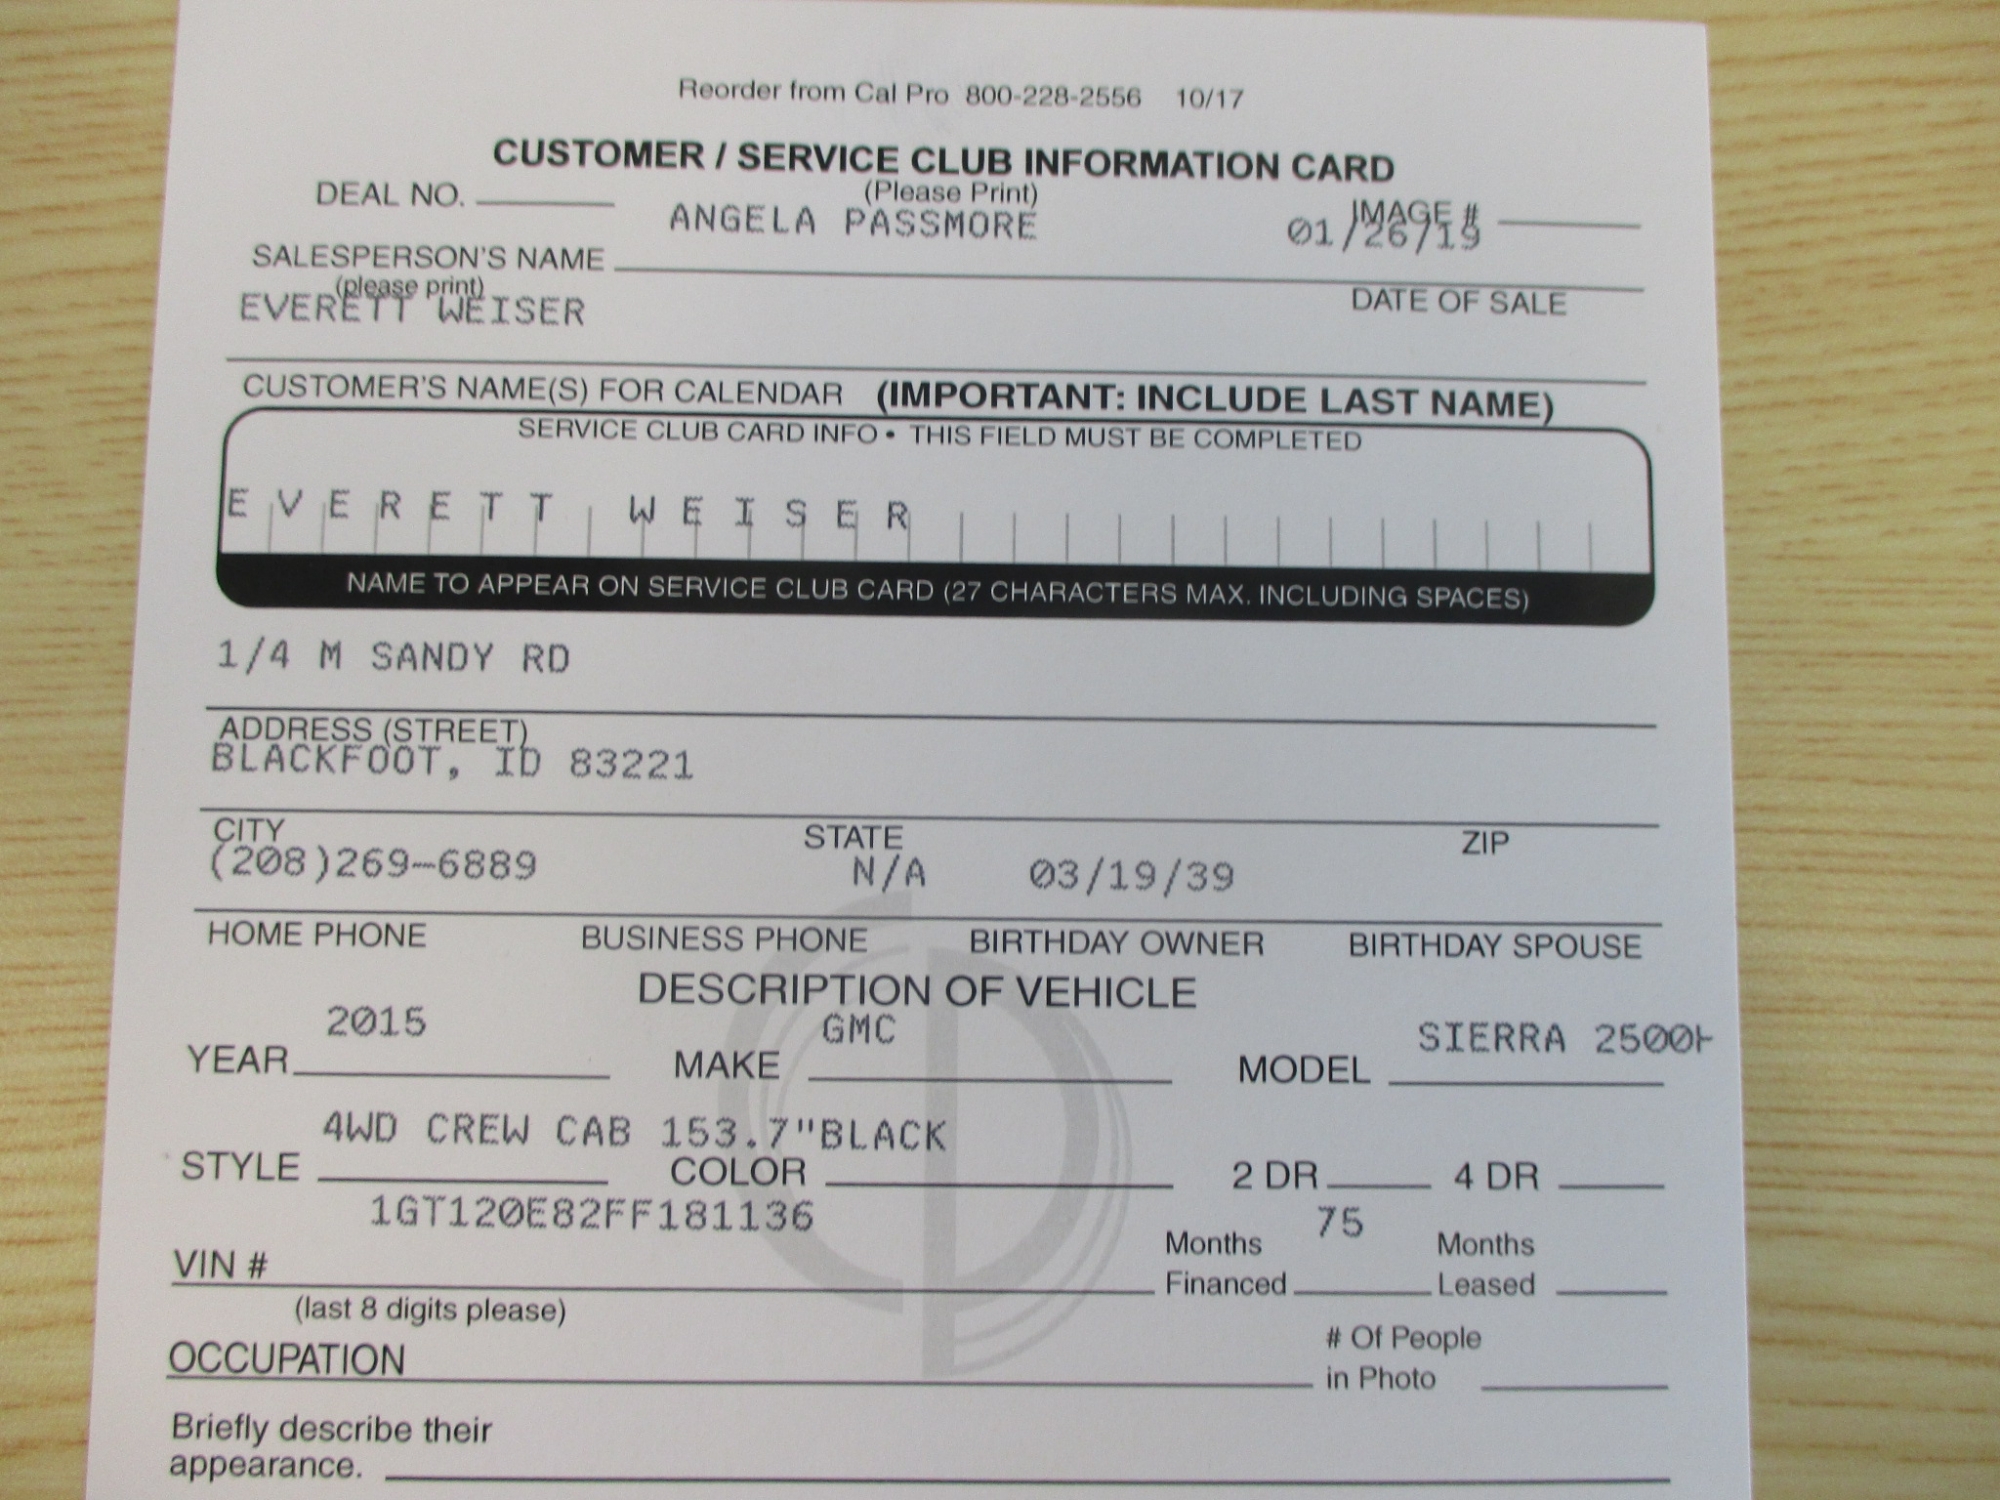 Reorder from Cal Pro 800-228-2556 10/17
CUSTOMER / SERVICE CLUB INFORMATION CARD
(Please Print)
DEAL NO. IMAGE #
ANGELA PASSMORE 01/26/19
SALESPERSON'S NAME
(please print) DATE OF SALE
EVERETT WEISER
CUSTOMER'S NAME(S) FOR CALENDAR (IMPORTANT: INCLUDE LAST NAME)
SERVICE CLUB CARD INFO • THIS FIELD MUST BE COMPLETED
EVERETT WEISER
NAME TO APPEAR ON SERVICE CLUB CARD (27 CHARACTERS MAX. INCLUDING SPACES)
1/4 M SANDY RD
ADDRESS (STREET)
BLACKFOOT, ID 83221
CITY STATE ZIP
(208)269-6889 N/A 03/19/39
HOME PHONE BUSINESS PHONE BIRTHDAY OWNER BIRTHDAY SPOUSE
DESCRIPTION OF VEHICLE
2015 GMC SIERRA 2500H
YEAR MAKE MODEL
4WD CREW CAB 153.7"BLACK
STYLE COLOR 2 DR 4 DR
1GT120E82FF181136 75
VIN # Months Financed Months Leased
(last 8 digits please)
OCCUPATION # Of People in Photo
Briefly describe their
appearance.